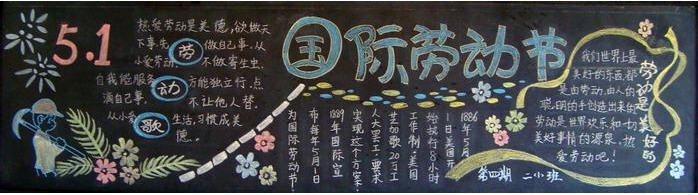 5.1
热爱劳动是美德,欲做天
下事先劳做自己事.从
小爱劳动,不做寄生虫.
自我能服务动方能独立行.点
滴自己事.不让他人替.
从小爱歌生活,习惯成美
德.
国际劳动节
1886年5月
1日美国芝
始执行8小时
工作制.美国
芝加哥20万工
人大罢工.要求
实现这个方案.
1889年国际宣
布每年5月1日
为国际劳动节.
劳动是美好的
我们世界上最
美好的东西.都
是由劳动.由人的
聪明的手创造出来的.
劳动是世界欢乐和一切
美好事情的源泉,热
爱劳动吧!
第四期 二小班